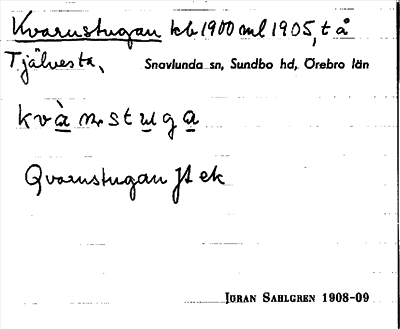 Kvarnstugan kb 1900 ml 1905, t å
Tjälvesta, Snavlunda sn, Sundbo hd, Örebro län
kvà̱rnstu̱ga̱
Qvarnstugan Jf ek
JÖRAN SAHLGREN 1908-09